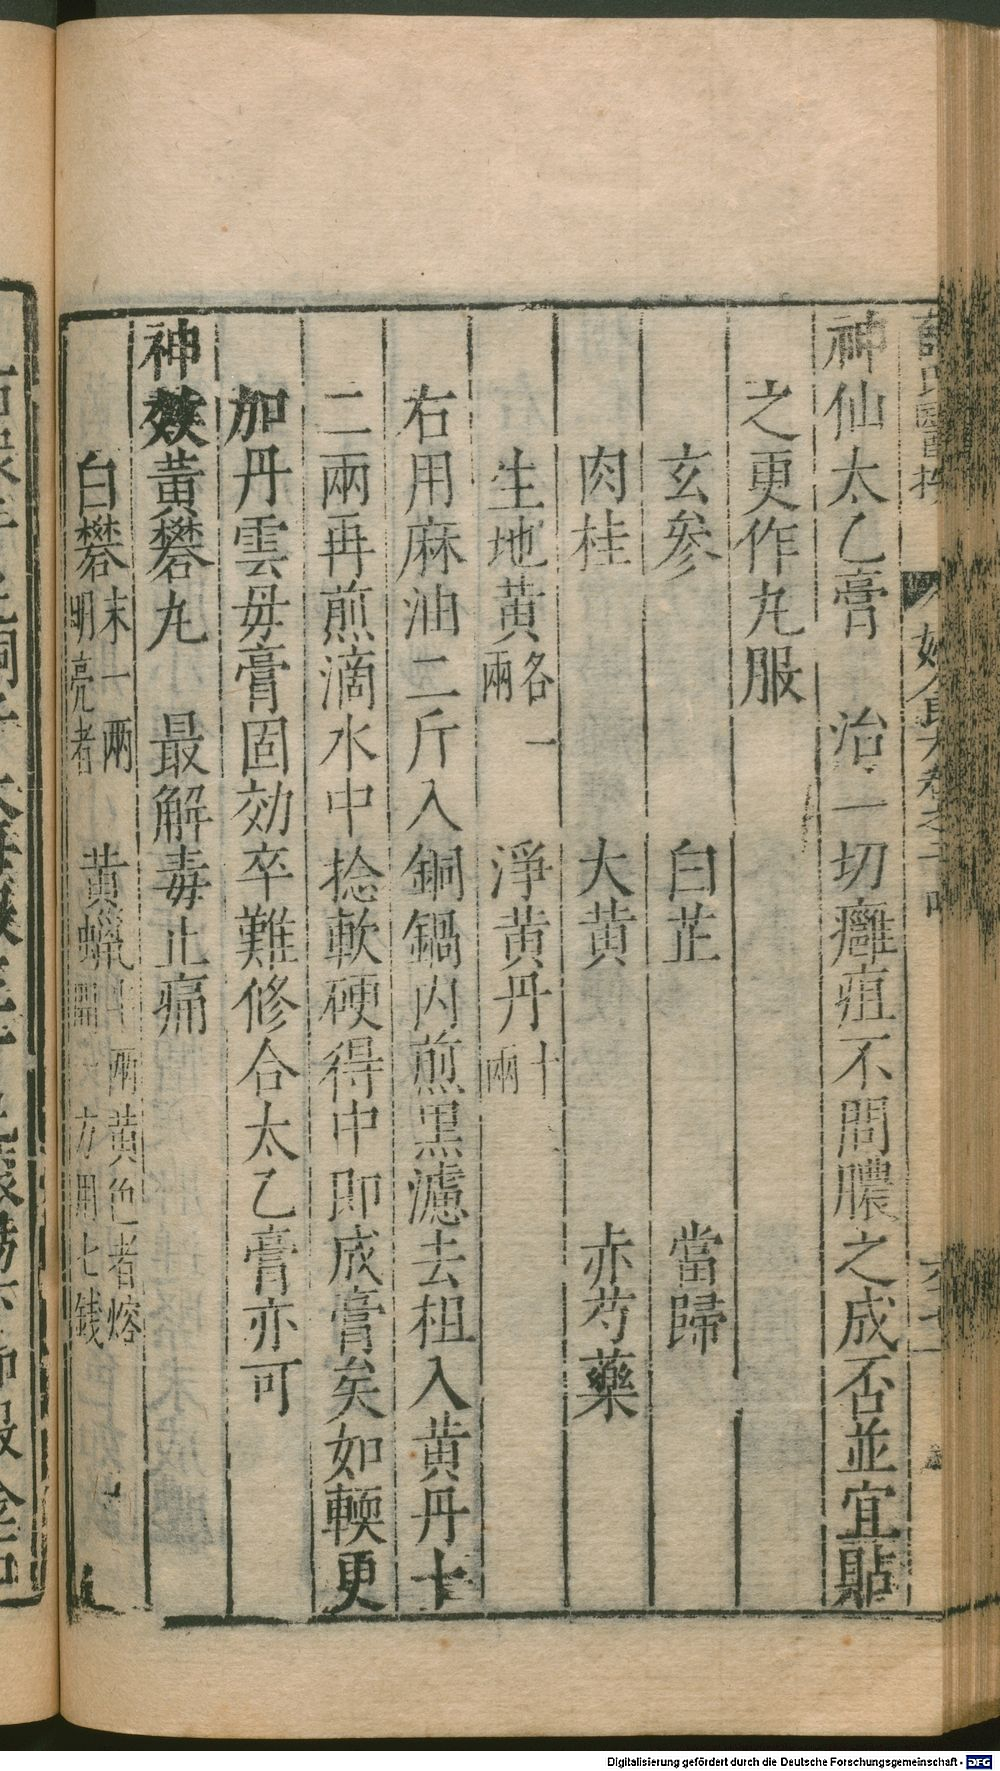 神仙太乙膏 治一切癰疽不問膿之成否並宜貼
之更作丸服
玄參 白芷 當歸
肉桂 大黃 赤芍藥
生地黃各一兩 淨黃丹十兩
右用麻油二斤入銅鍋內煎黑濾去柤入黃丹十
二兩再煎滴水中捻軟硬得中即成膏矣如輭更
加丹雲母膏固効卒難修合太乙膏亦可
神效黃礬丸 最解毒止痛
白礬末一兩明亮者 黃蠟 兩黃色者熔 方用七錢
Digitalisierung gefördert durch die Deutsche Forschungsgemeinschaft - DFG